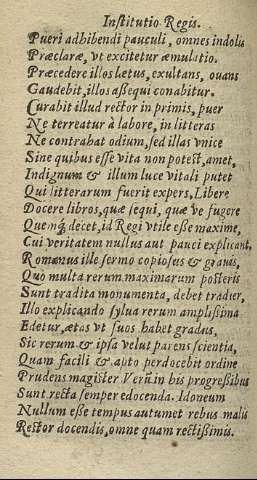 Institutio Regis.
Pueri adhibendi pauculi, omnes indolis
Præclaræ, vt excitetur æmulatio.
Præcedere illos lætus, exultans, ouans
Gaudebit, illos assequi conabitur.
Curabit illud rector in primis, puer
Ne terreatur à labore, in litteras
Ne contrahat odium, sed illas vnice
Sine quibus esse vita non potest, amet,
Indignum & illum luce vitali putet
Qui litterarum fuerit expers. Libere
Docere libros, quæ sequi, quæ ve fugere
Quemq; decet, id Regi vtile esse maxime,
Cui veritatem nullus aut pauci explicant.
Romanus ille sermo copiosus & grauis,
Quo multa rerum maximarum posteris
Sunt tradita monumenta, debet tradier,
Illo explicando sylua rerum amplissima
Edetur, ætas vt suos habet gradus,
Sic rerum & ipsa velut parens scientia,
Quam facili & apto perdocebit ordine
Prudens magister Verũ in his progressibus
Sunt recta semper edocenda. Idoneum
Nullum esse tempus autumet rebus malis
Rector docendis, omne quam rectissimis.